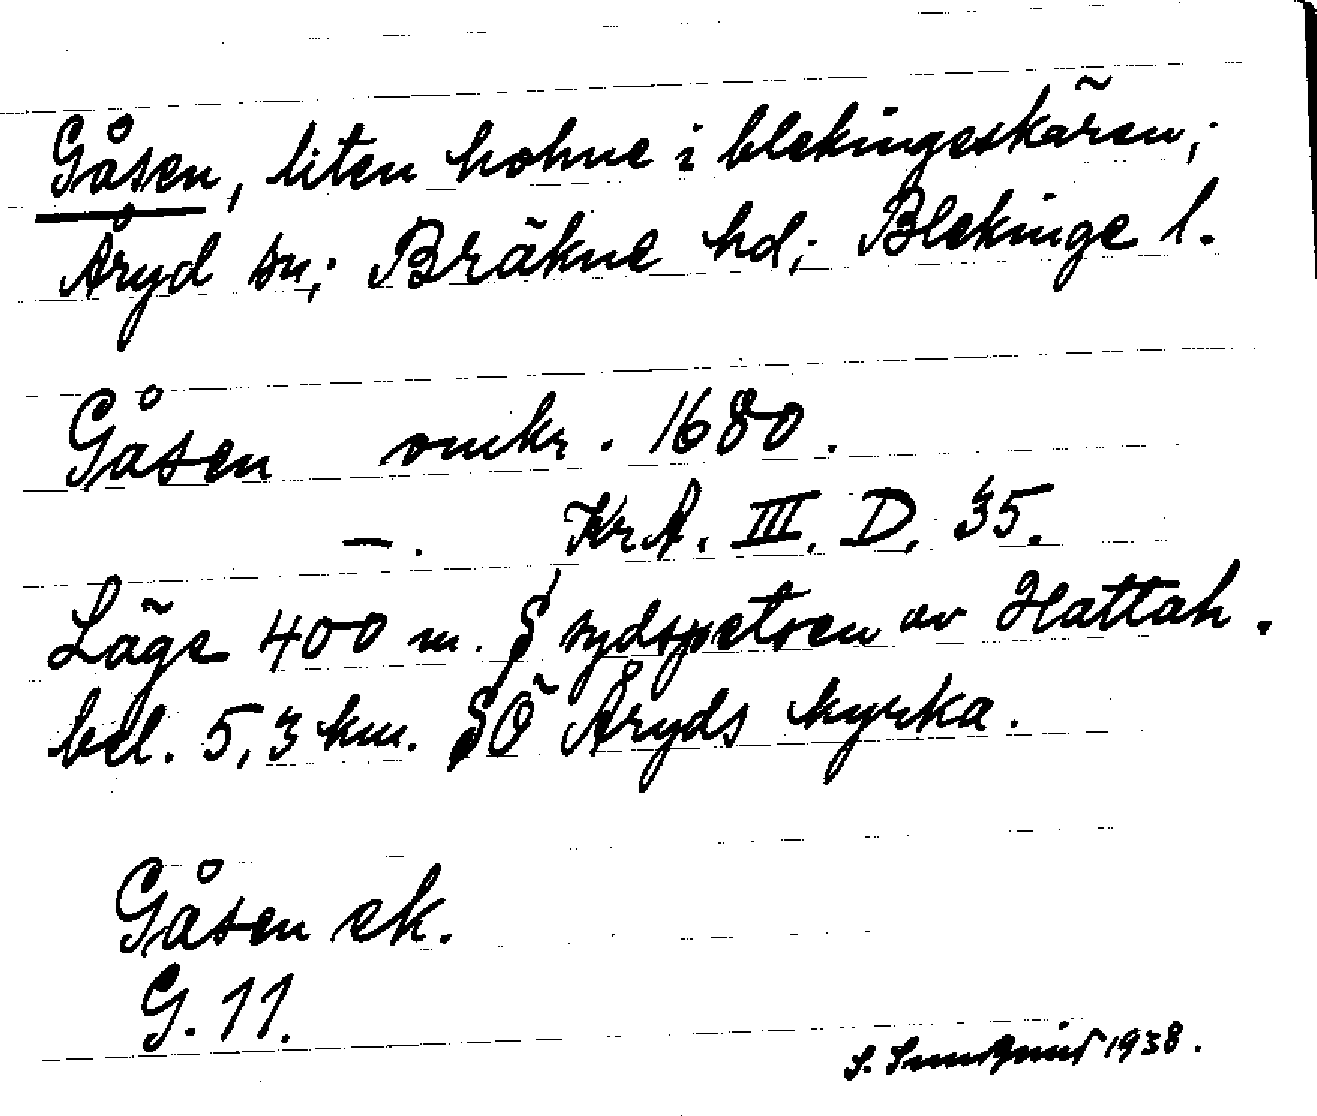 Gåsen, liten holme i blekingeskären;
Åryd sn; Bräkne hd; Blekinge l.
Gåsen omkr. 1680.
—. KrA. III. D. 35.
Läge 400 m. S sydspetsen av Hattah.
bel. 5,3 km. SÖ Åryds kyrka.
Gåsen ek.
G. 11.
S. 1938.